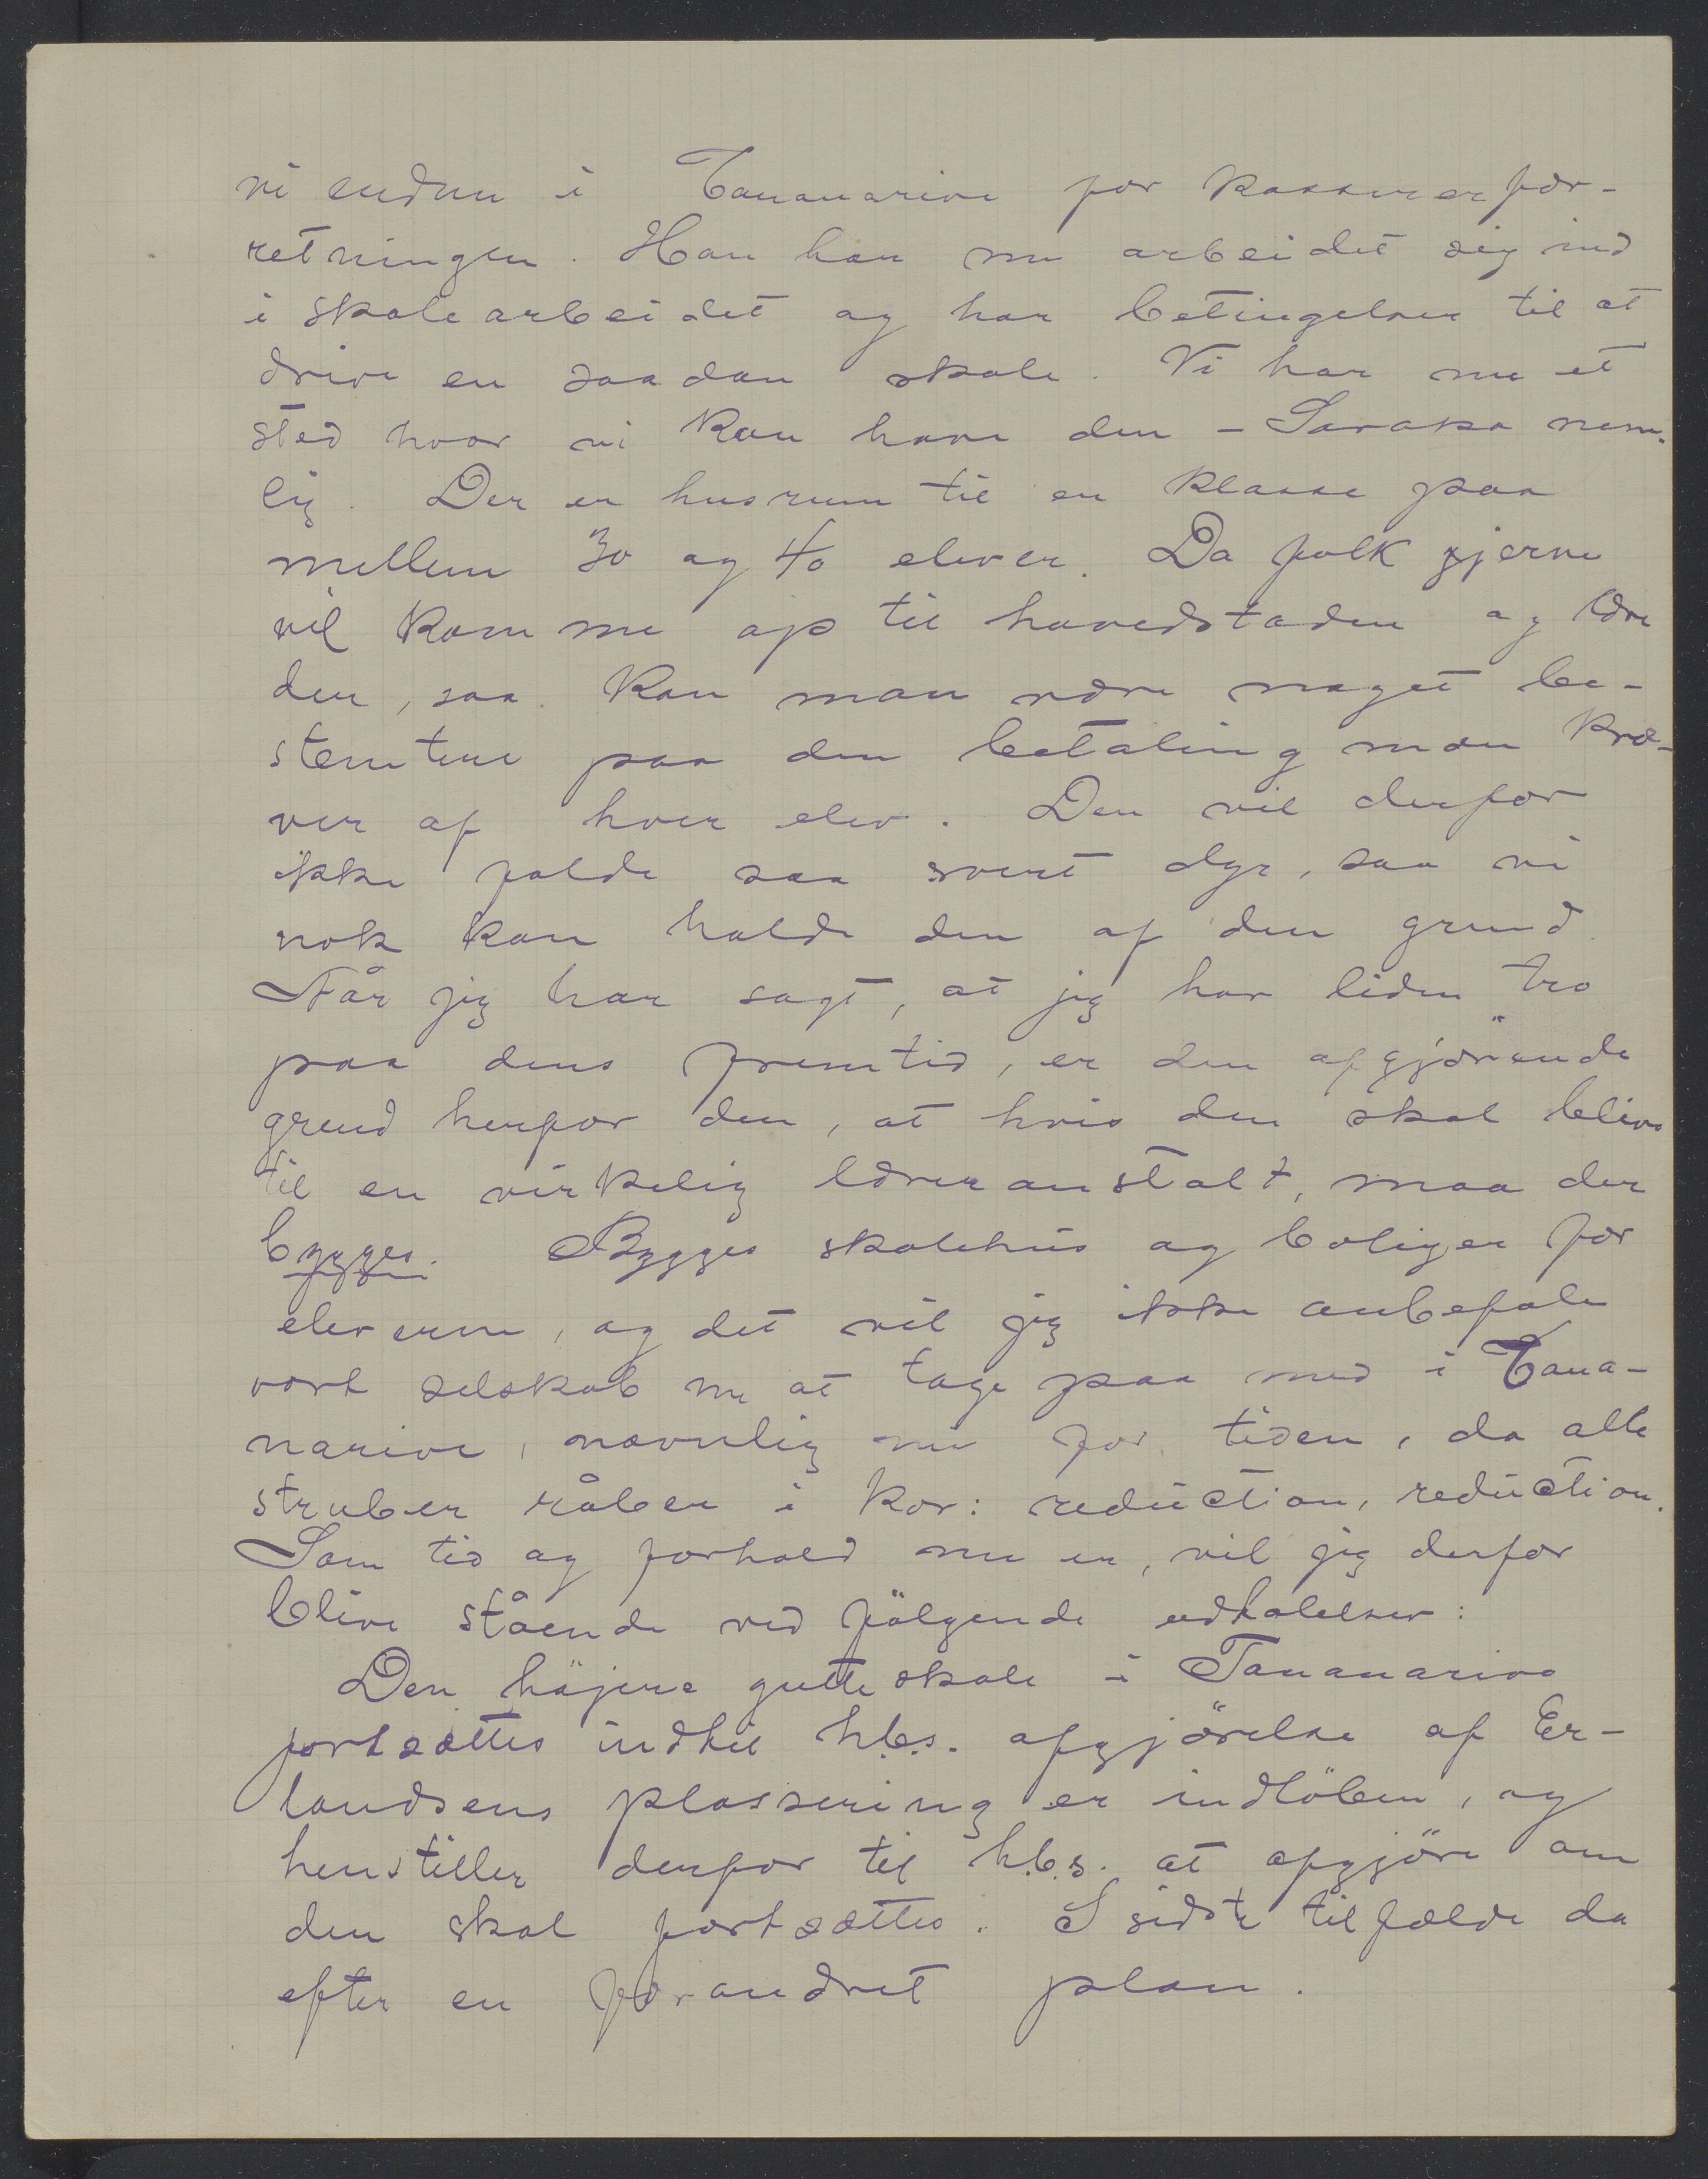 vi endnu i Tananarive for kasserer for-
retningen. Han har nu arbeidet sig ind
i skolearbeidet og har betingelser til at
drive en saadan skole. Vi har nu et
sted hvor vi kan have den - Saraka nem-
lig. Der er husrum til en klasse paa
mellem 30 og 40 elever. Da folk gjerne
vil komme op til hovedstaden og lære
den, saa kan man være noget be-
stemtere paa den betaling man kræ-
ver af hver elev. Den vil derfor
ikke falde saa svert dyr, saa vi
nok kan holde den af den grund.
Når jeg har sagt, at jeg har liden tro
paa dens fremtid, er den afgjörende
grund herfor den, at hvis den skal blive
til en virkelig læreranstalt, maa der
bygges. Bygges skolehus og boliger for
eleverne, og det vil jeg ikke anbefale
vort selskab nu at tage paa med i Tana-
narive, navnlig nu for tiden, da alle
struber råber i kor: reduction, reduction.
Som tid og forhold nu er, vil jeg derfor
blive stående ved fölgende udtalelser:
Den höjere gutteskole i Tananarivo
fortsættes indtil h.b.s. afgjörelse af Er-
landsens plassering er indlöben, og
henstiller derfor til h.b.s. at afgjöre om
den skal fortsættes. I sidste tilfælde da
efter en forandret plan.